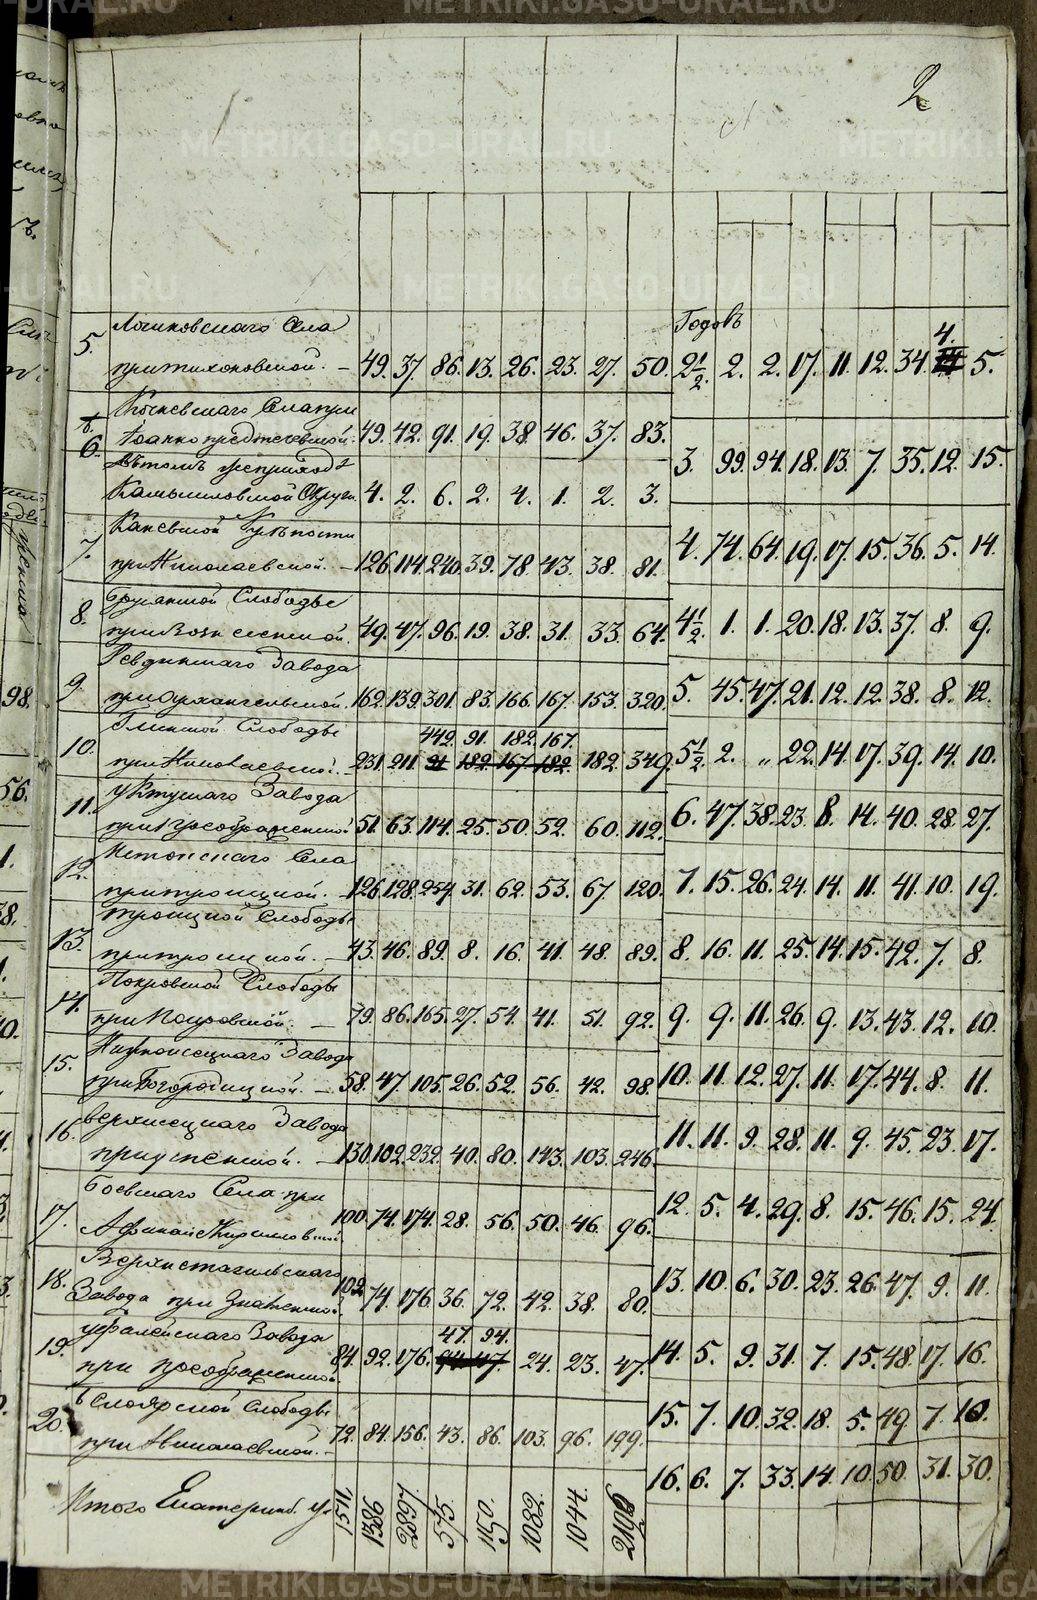 METRIKI.GASO-URAL.RU
2
Годовъ
5. Логиновскаго Села
при Тихоновской. – 49. 37. 86. 13. 26. 23. 27. 50. 2½. 2. 2. 17. 11. 12. 34. 4. 5.
Села при
6. Іоанно предтечевской. 49. 42. 91. 19. 38. 46. 37. 83.
3. 99. 94. 18. 13. 7. 35. 12. 15.
Камышловской Округи. 4. 2. 6. 2. 4. 1. 2. 3.
7. Крѣпости
при Николаевской. – 126. 114. 240. 39. 78. 43. 38. 81. 4. 74. 64. 19. 17. 15. 36. 5. 14.
8. Слободы
при Вознесенской. 49. 47. 96. 19. 38. 31. 33. 64. 4½. 1. 1. 20. 18. 13. 37. 8. 9.
9. Ревдинскаго Завода
при Архангельской. 162. 139. 301. 83. 166. 167. 153. 320. 5. 45. 47. 21. 12. 12. 38. 8. 12.
Глинской Слободы 442. 91. 182. 167.
10. при Николаевской. – 231. 211. 91 182. 167. 182. 182. 349. 5½. 2. „ 22. 14. 17. 39. 14. 10.
11. Уктусскаго Завода
при Преображенской 51. 63. 114. 25. 50. 52. 60. 112. 6. 47. 38. 23. 8. 14. 40. 28. 27.
12. Села
при троицкой. – 126. 128. 254. 31. 62. 53. 67. 120. 7. 15. 26. 24. 14. 11. 41. 10. 19.
13. троицкой Слободы
при троицкой. – 43. 46. 89. 8. 16. 41. 48. 89. 8. 16. 11. 25. 14. 15. 42. 7. 8.
14. Покровской Слободы
при Покровской. – 79. 86. 165. 27. 54. 41. 51. 92. 9. 9. 11. 26. 9. 13. 43. 12. 10.
15. Нижноисецкаго Завода
при Богородицкой. – 58. 47. 105. 26. 52. 56. 42. 98. 10. 11. 12. 27. 11. 17. 44. 8. 11.
16. Верхисецкаго Завода
при успенской. – 130. 102. 232. 40. 80. 143. 103. 246. 11. 11. 9. 28. 11. 9. 45. 23. 17.
17. Боевскаго Села при
Афонасіе Кириловской 100. 74. 174. 28. 56. 50. 46. 96. 12. 5. 4. 29. 8. 15. 46. 15. 24.
18. Верхнетагильскаго
Завода при Знаменской. 102. 74. 176. 36. 72. 42. 38. 80. 13. 10. 6. 30. 23. 26. 47. 9. 11.
19. Уфалейскаго Завода 47. 94.
при преображенской 84. 92. 176. 94. 47. 24. 23. 47. 14. 5. 9. 31. 7. 15. 48. 17. 16.
20. Белоярской Слободы
при Николаевской. – 72. 84. 156. 43. 86. 103. 96. 199. 15. 7. 10. 32. 18. 5. 49. 7. 10.
16. 6. 7. 33. 14. 10. 50. 31. 30.
Итого Екатеринб. у. 1511. 1386 2897. 575. 1150. 1082. 1044. 2106
98.
56.